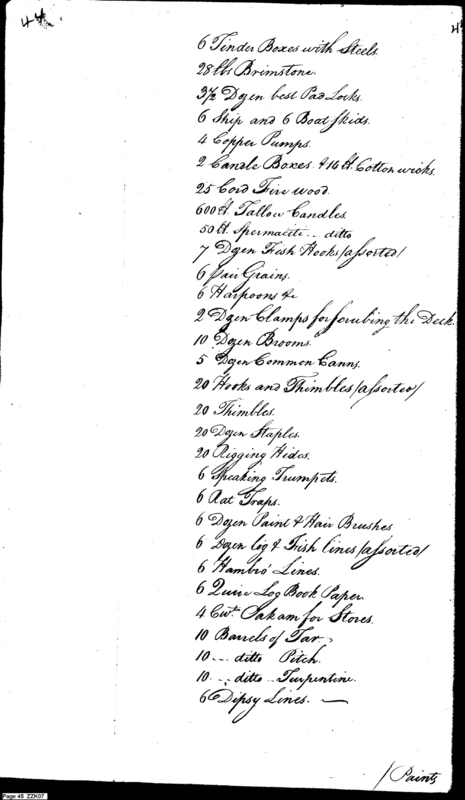 44
4
6 Tinder Boxes with Steels.
28 lbs Brimstone.
3 1/2 Dozen best Pad Locks.
6 Ship and 6 Boat Skids.
4 Copper Pumps.
2 Candle Boxes. & 16 lt. Cotton wicks.
25 Cord Fire wood.
600 lt. Tallow Candles
50 lt. Spermaciti -- ditto
7 Dozen Fish Hooks /assorted/
6 pair Grains.
6 Harpoons &c
2 Dozen Clamps for scrubing the Deck.
10 Dozen Brooms.
5 Dozen Common Canns.
20 Hooks and Thimbles /assorted/
20 Thimbles.
20 Dozen Staples.
20 Rigging Hides.
6 Speaking Trumpets.
6 Rat Traps.
6 Dozen Paint & Hair Brushes
6 Dozen log & Fish lines /assorted/
6 Hambro' Lines.
6 Quire Log Book Paper.
4 Cwt. Oakam for Stores.
10 Barrels of Tar.
10 --- ditto Pitch.
10 --- ditto -- Turpentine.
6 Dipsy Lines. —
/Paints
Page 45 ZZK07